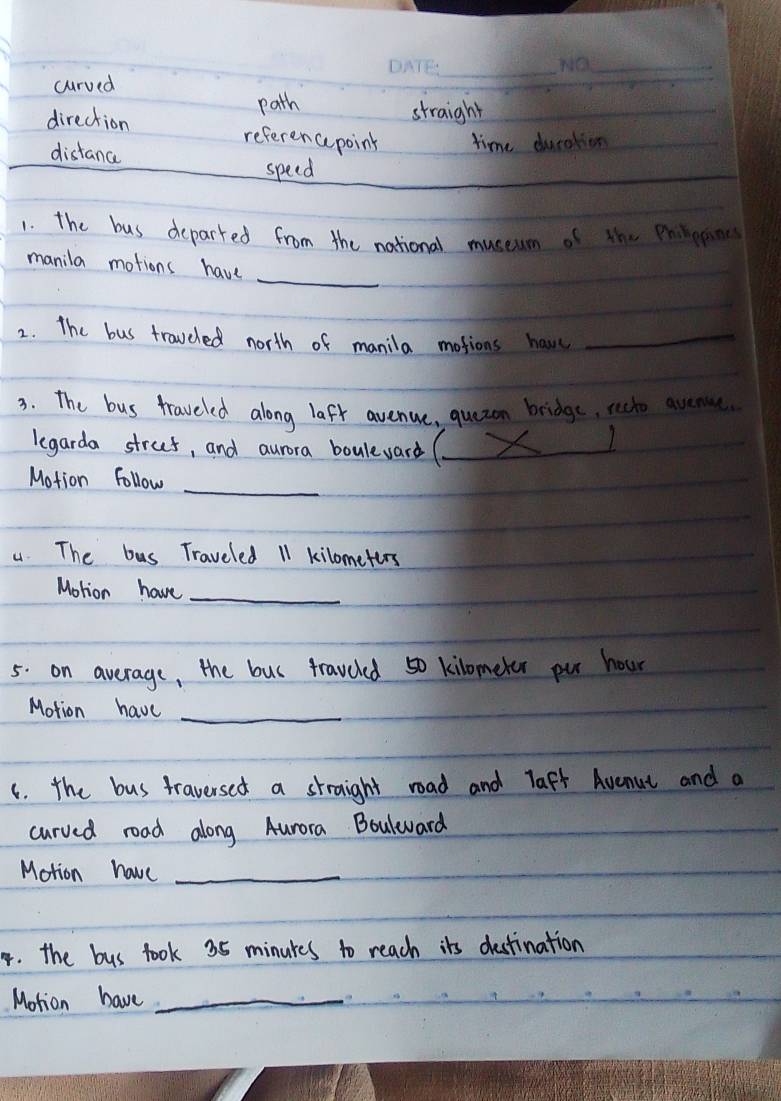 DATE: NO.
curved path straight
direction referencepoint time duration
distance speed
1. the bus departed from the national museum of the Philippines
manila motions have
2. The bus traveled north of manila motions have
3. The bus traveled along laft avenue, quezon bridge, recto avenue,
legarda street, and aurora boulevard ( X )
Motion follow
4. The bus Traveled 11 kilometers
Motion have
5. on average, the bus traveled 50 kilometer per hour
Motion have
6. the bus traversed a straight road and Taft Avenue and a
curved road along Aurora Boulevard
Motion have
7. the bus took 35 minutes to reach its destination
Motion have